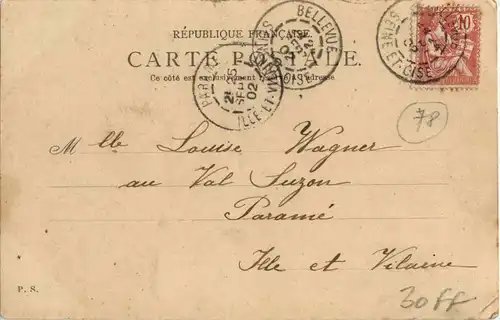 RÉPUBLIQUE FRANÇAISE
CARTE POSTALE
Ce côté est exclusivement réservé à l'adresse
BELLEVUE
SEINE-ET-OISE
10
PAR
21
25
SEPT
02
ILLE-ET-VILAINE
78
Mlle Louise Wagner
au Val Suzon
Paramé
Ille et Vilaine
P. S.
30 FF